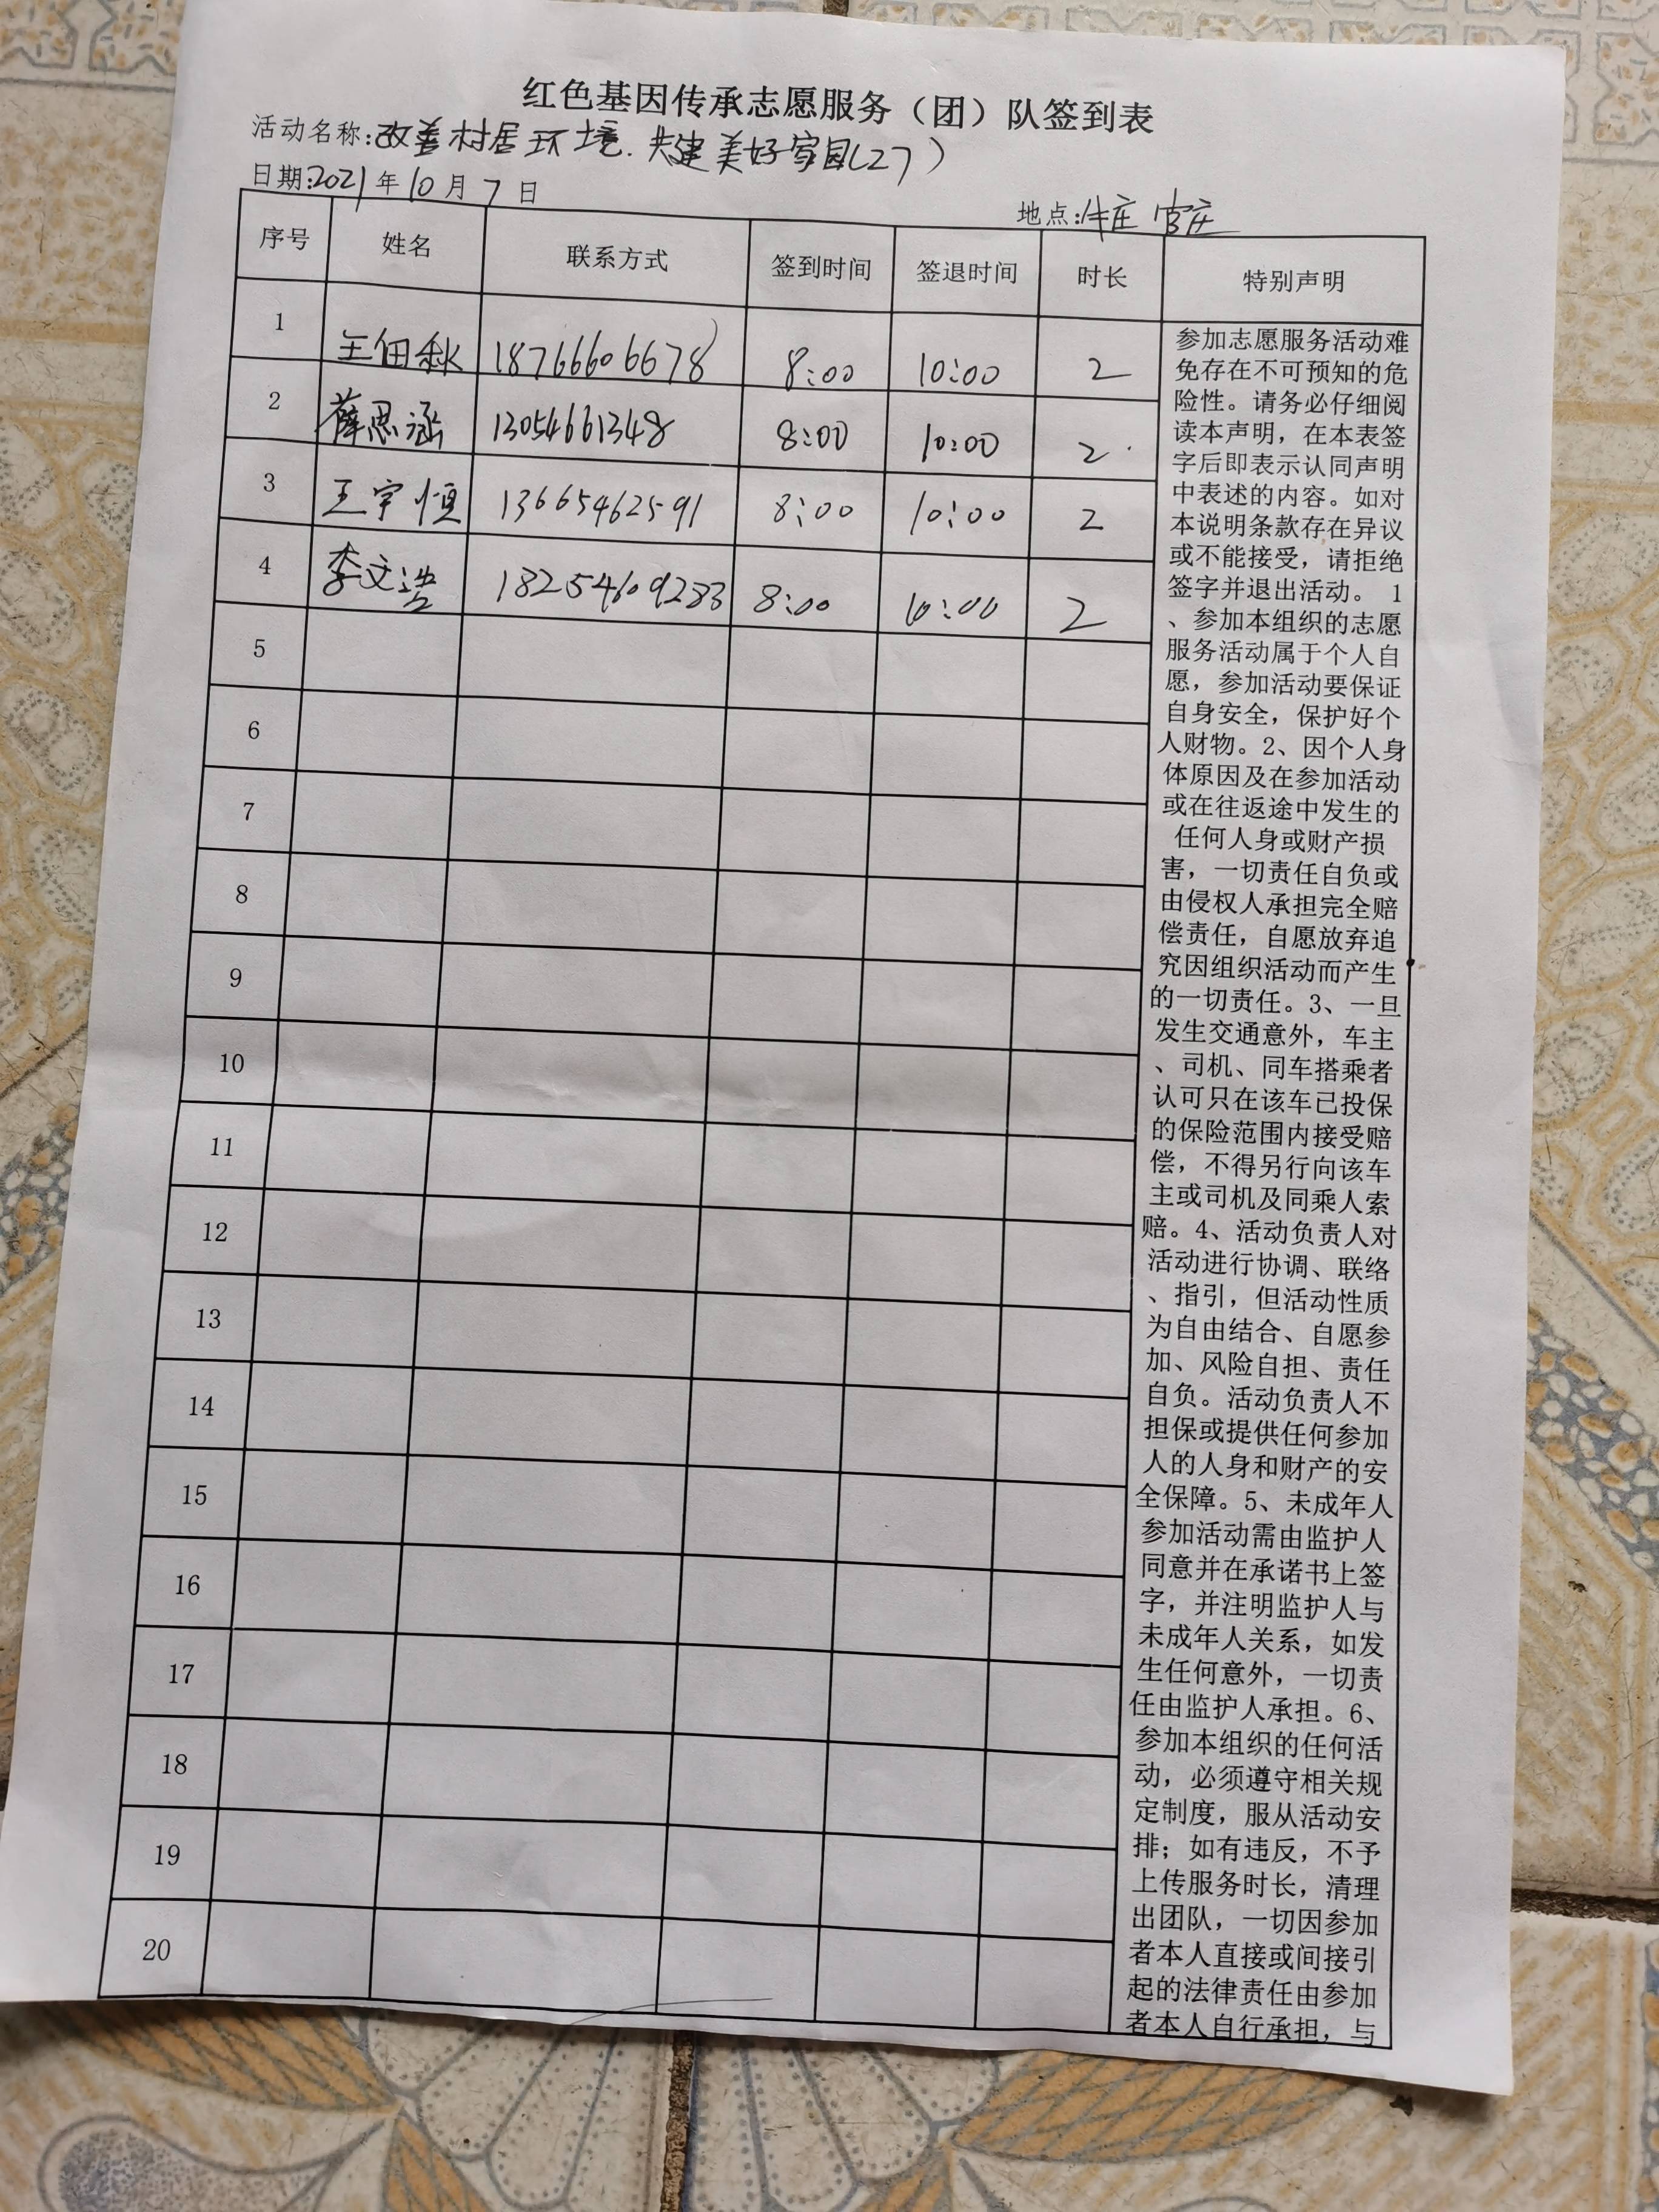 红色基因传承志愿服务（团）队签到表
活动名称:改善村居环境.共建美好家园(27)
日期:2021年10月7日
地点:牛庄 官庄
序号 姓名 联系方式 签到时间 签退时间 时长 特别声明
1 王佃秋 18766606678 8:00 10:00 2
2 薛思涵 13054661348 8:00 10:00 2
3 王宇恒 13665462591 8:00 10:00 2
4 李文浩 18254609283 8:00 10:00 2
5
6
7
8
9
10
11
12
13
14
15
16
17
18
19
20
参加志愿服务活动难
免存在不可预知的危
险性。请务必仔细阅
读本声明，在本表签
字后即表示认同声明
中表述的内容。如对
本说明条款存在异议
或不能接受，请拒绝
签字并退出活动。 1
、参加本组织的志愿
服务活动属于个人自
愿，参加活动要保证
自身安全，保护好个
人财物。2、因个人身
体原因及在参加活动
或在往返途中发生的
任何人身或财产损
害，一切责任自负或
由侵权人承担完全赔
偿责任，自愿放弃追
究因组织活动而产生
的一切责任。3、一旦
发生交通意外，车主
、司机、同车搭乘者
认可只在该车已投保
的保险范围内接受赔
偿，不得另行向该车
主或司机及同乘人索
赔。4、活动负责人对
活动进行协调、联络
、指引，但活动性质
为自由结合、自愿参
加、风险自担、责任
自负。活动负责人不
担保或提供任何参加
人的人身和财产的安
全保障。5、未成年人
参加活动需由监护人
同意并在承诺书上签
字，并注明监护人与
未成年人关系，如发
生任何意外，一切责
任由监护人承担。6、
参加本组织的任何活
动，必须遵守相关规
定制度，服从活动安
排；如有违反，不予
上传服务时长，清理
出团队，一切因参加
者本人直接或间接引
起的法律责任由参加
者本人自行承担，与